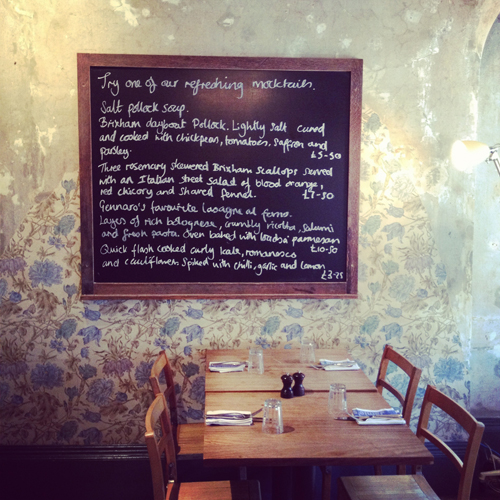 Try one of our refreshing mocktails.
Salt pollock soup.
Brixham dayboat Pollock. Lightly salt cured
and cooked with chickpeas, tomatoes, saffron and
parsley. £5-50
Three rosemary skewered Brixham Scallops served
with an Italian street salad of blood orange,
red chicory and shaved fennel. £7-50
Gennaro's favourite lasagne al forno.
Layers of rich bolognese, crumbly ricotta, salumi
and fresh pasta. Oven baked with loadsa parmesan
£10-50
Quick flash cooked curly kale, romanesco
and cauliflower. Spiked with chilli, garlic and lemon
£3-75